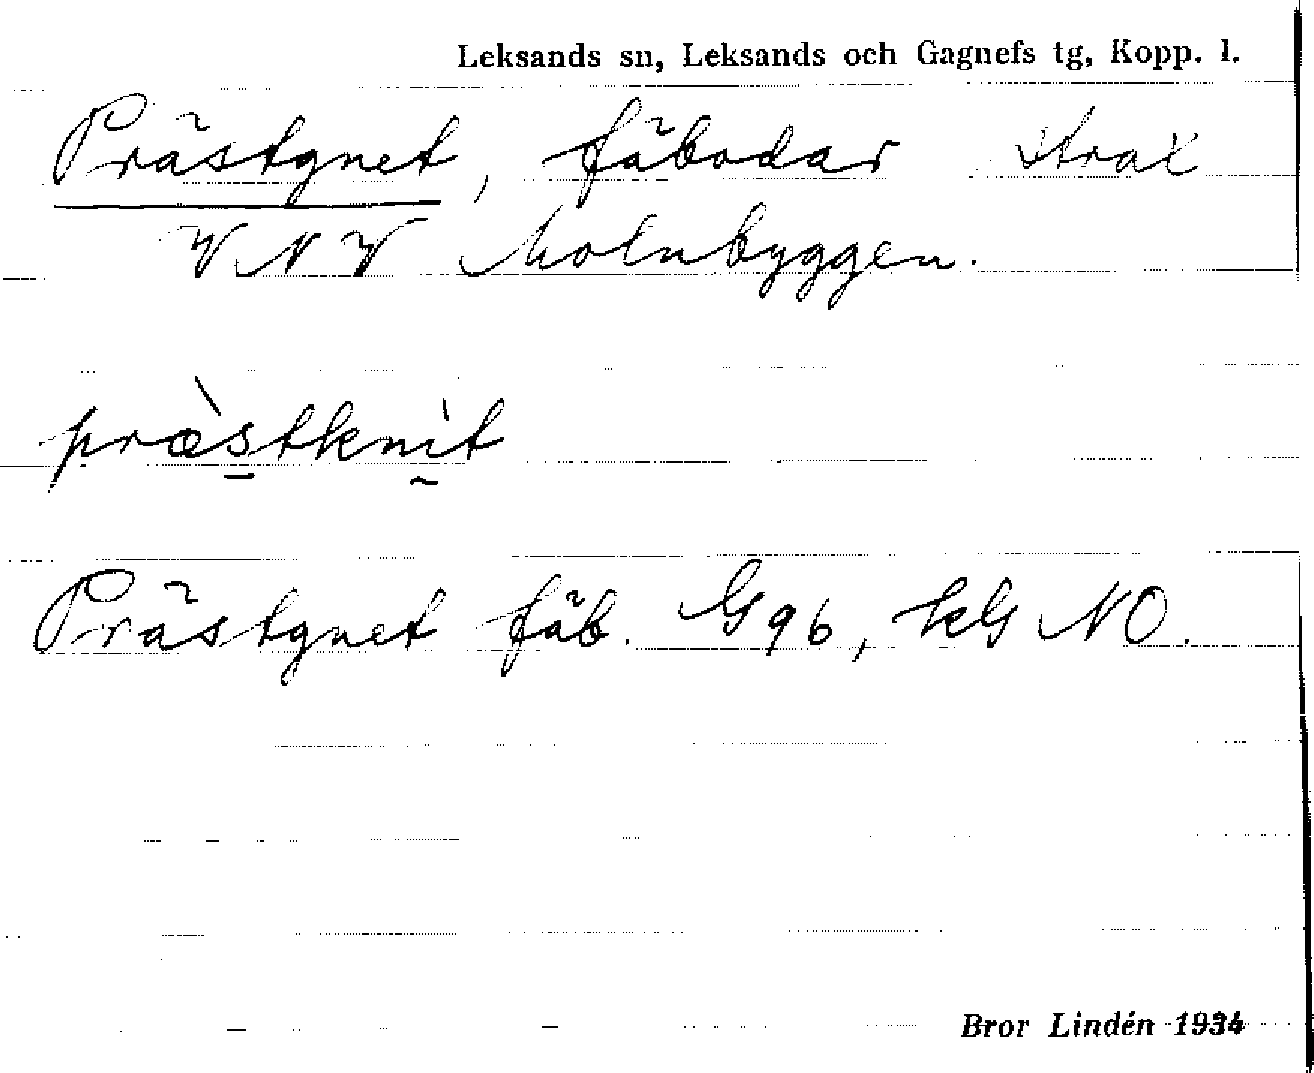 Leksands sn, Leksands och Gagnefs tg, Kopp. l.
Prästgnet, fäbodar strax
VNV Molnbyggen.
præ̀stknìt
Prästgnet fäb. G96, kG NO.
Bror Lindén 1934